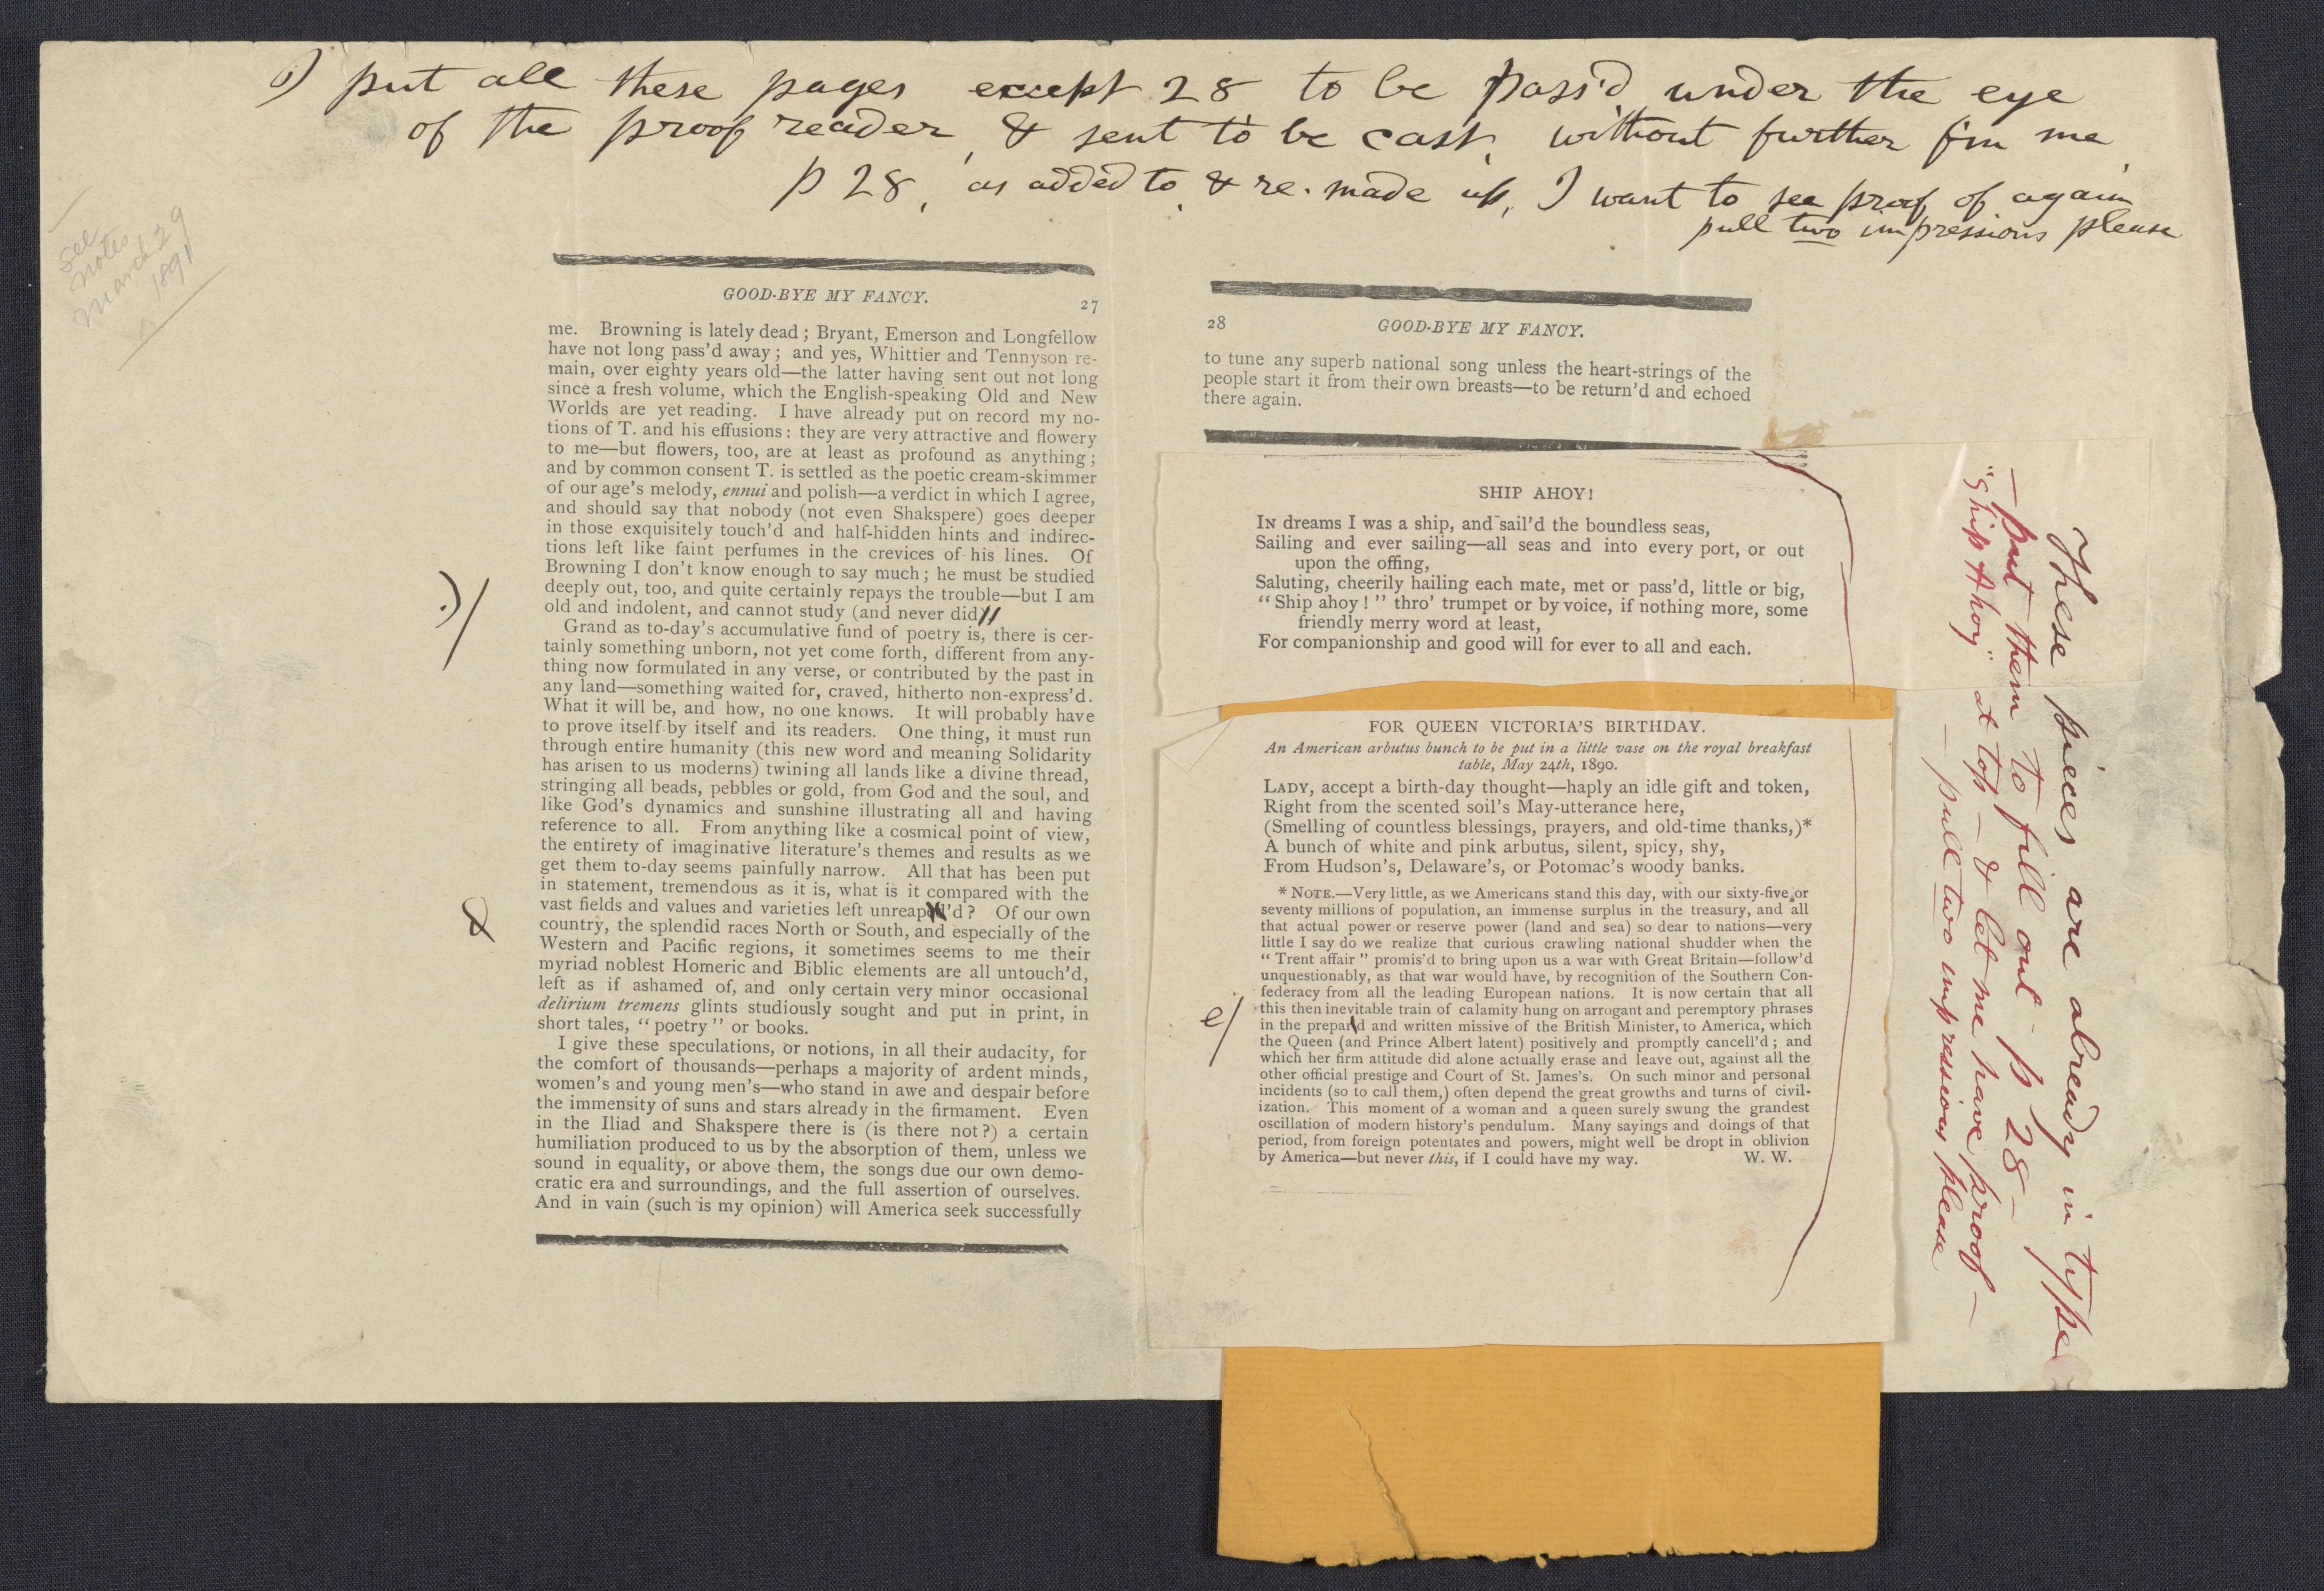 I put all these pages except 28 to be pass'd under the eye
of the proof reader, & sent to be cast, without further f'm me
p 28, as added to, & re-made up, I want to see proof of again
pull two impressions please
see
notes
March 29
1891
GOOD-BYE MY FANCY.
27
me. Browning is lately dead; Bryant, Emerson and Longfellow
have not long pass'd away; and yes, Whittier and Tennyson re-
main, over eighty years old—the latter having sent out not long
since a fresh volume, which the English-speaking Old and New
Worlds are yet reading. I have already put on record my no-
tions of T. and his effusions: they are very attractive and flowery
to me—but flowers, too, are at least as profound as anything;
and by common consent T. is settled as the poetic cream-skimmer
of our age's melody, ennui and polish—a verdict in which I agree,
and should say that nobody (not even Shakspere) goes deeper
in those exquisitely touch'd and half-hidden hints and indirec-
tions left like faint perfumes in the crevices of his lines. Of
Browning I don't know enough to say much; he must be studied
deeply out, too, and quite certainly repays the trouble—but I am
old and indolent, and cannot study (and never did
.)/
Grand as to-day's accumulative fund of poetry is, there is cer-
tainly something unborn, not yet come forth, different from any-
thing now formulated in any verse, or contributed by the past in
any land—something waited for, craved, hitherto non-express'd.
What it will be, and how, no one knows. It will probably have
to prove itself by itself and its readers. One thing, it must run
through entire humanity (this new word and meaning Solidarity
has arisen to us moderns) twining all lands like a divine thread,
stringing all beads, pebbles or gold, from God and the soul, and
like God's dynamics and sunshine illustrating all and having
reference to all. From anything like a cosmical point of view,
the entirety of imaginative literature's themes and results as we
get them to-day seems painfully narrow. All that has been put
in statement, tremendous as it is, what is it compared with the
vast fields and values and varieties left unreap'd? Of our own
country, the splendid races North or South, and especially of the
Western and Pacific regions, it sometimes seems to me their
myriad noblest Homeric and Biblic elements are all untouch'd,
left as if ashamed of, and only certain very minor occasional
delirium tremens glints studiously sought and put in print, in
short tales, "poetry" or books.
I give these speculations, or notions, in all their audacity, for
the comfort of thousands—perhaps a majority of ardent minds,
women's and young men's—who stand in awe and despair before
the immensity of suns and stars already in the firmament. Even
in the Iliad and Shakspere there is (is there not?) a certain
humiliation produced to us by the absorption of them, unless we
sound in equality, or above them, the songs due our own demo-
cratic era and surroundings, and the full assertion of ourselves.
And in vain (such is my opinion) will America seek successfully
28
GOOD-BYE MY FANCY.
to tune any superb national song unless the heart-strings of the
people start it from their own breasts—to be return'd and echoed
there again.
SHIP AHOY!
IN dreams I was a ship, and sail'd the boundless seas,
Sailing and ever sailing—all seas and into every port, or out
upon the offing,
Saluting, cheerily hailing each mate, met or pass'd, little or big,
"Ship ahoy!" thro' trumpet or by voice, if nothing more, some
friendly merry word at least,
For companionship and good will for ever to all and each.
FOR QUEEN VICTORIA'S BIRTHDAY.
An American arbutus bunch to be put in a little vase on the royal breakfast
table, May 24th, 1890.
LADY, accept a birth-day thought—haply an idle gift and token,
Right from the scented soil's May-utterance here,
(Smelling of countless blessings, prayers, and old-time thanks,)*
A bunch of white and pink arbutus, silent, spicy, shy,
From Hudson's, Delaware's, or Potomac's woody banks.
* NOTE.—Very little, as we Americans stand this day, with our sixty-five or
seventy millions of population, an immense surplus in the treasury, and all
that actual power or reserve power (land and sea) so dear to nations—very
little I say do we realize that curious crawling national shudder when the
"Trent affair" promis'd to bring upon us a war with Great Britain—follow'd
unquestionably, as that war would have, by recognition of the Southern Con-
federacy from all the leading European nations. It is now certain that all
this then inevitable train of calamity hung on arrogant and peremptory phrases
e/
in the prepar'd and written missive of the British Minister, to America, which
the Queen (and Prince Albert latent) positively and promptly cancell'd; and
which her firm attitude did alone actually erase and leave out, against all the
other official prestige and Court of St. James's. On such minor and personal
incidents (so to call them,) often depend the great growths and turns of civil-
ization. This moment of a woman and a queen surely swung the grandest
oscillation of modern history's pendulum. Many sayings and doings of that
period, from foreign potentates and powers, might well be dropt in oblivion
by America—but never this, if I could have my way. W. W.
These pieces are already in type
—put them to fill out p 28—
"Ship Ahoy" at top—& let me have proof—
—pull two impressions please